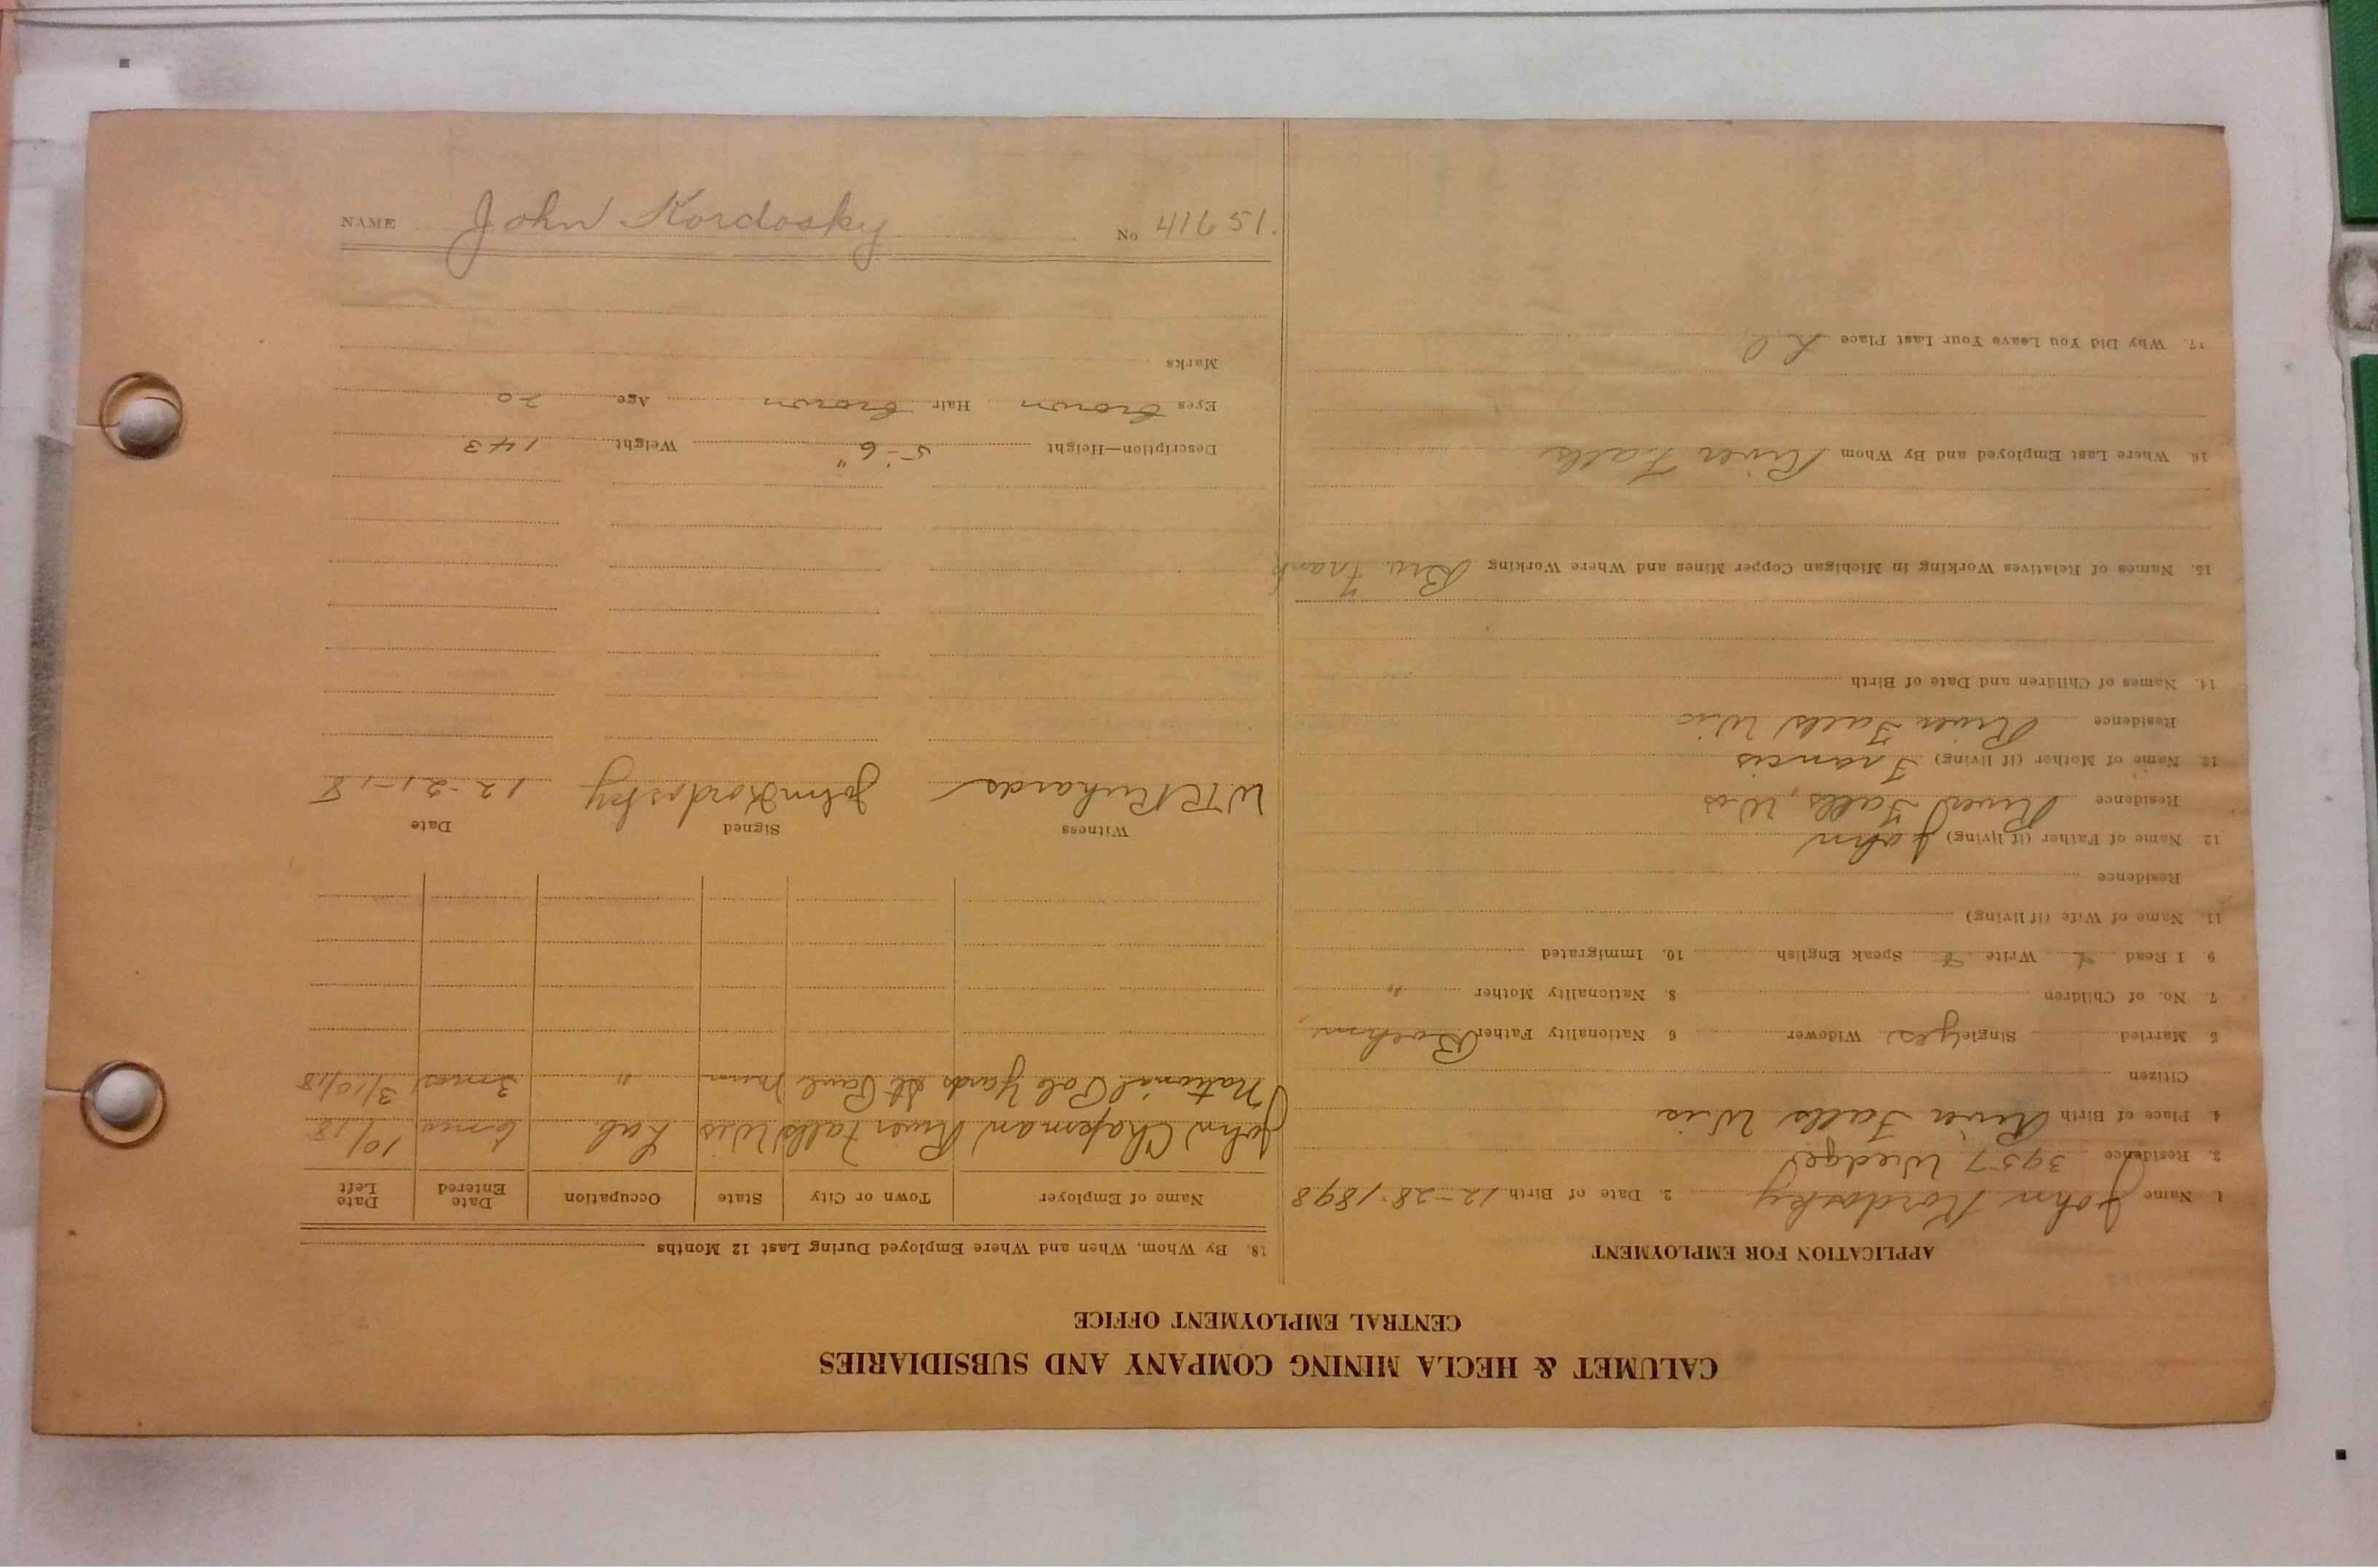 CALUMET & HECLA MINING COMPANY AND SUBSIDIARIES
CENTRAL EMPLOYMENT OFFICE
APPLICATION FOR EMPLOYMENT
1. Name John Kordosky 2. Date of Birth 12-28-1898
2. Residence 3957 Wedge
4. Place of Birth River Falls Wis
Citizen
5 Married Single yes Widower 6 Nationality Father Bohem,
7. No. of Children 8. Nationality Mother "
9. I Read Write Speak English 10. Immigrated
11. Name of Wife (if living)
Residence
12 Name of Father (if living) John
Residence River Falls, Wis
13. Name of Mother (if living) Francis
Residence River Falls Wis
14. Names of Children and Date of Birth
15. Names of Relatives Working in Michigan Copper Mines and Where Working Bro. Frank
16. Where Last Employed and By Whom River Falls
17. Why Did You Leave Your Last Place
18. By Whom, When and Where Employed During Last 12 Months
Name of Employer Town or City State Occupation Date Entered Date Left
John Chapman River Falls Wis Lab. 6 mos 10/18
National Pole Yards St Paul Minn " 3 mos 3/10/18
Witness Signed Date
W R Richards John Kordosky 12-21-18
Description—Height 5'-6" Weight 143
Eyes brown Hair brown Age 20
Marks
NAME John Kordosky No 41651.